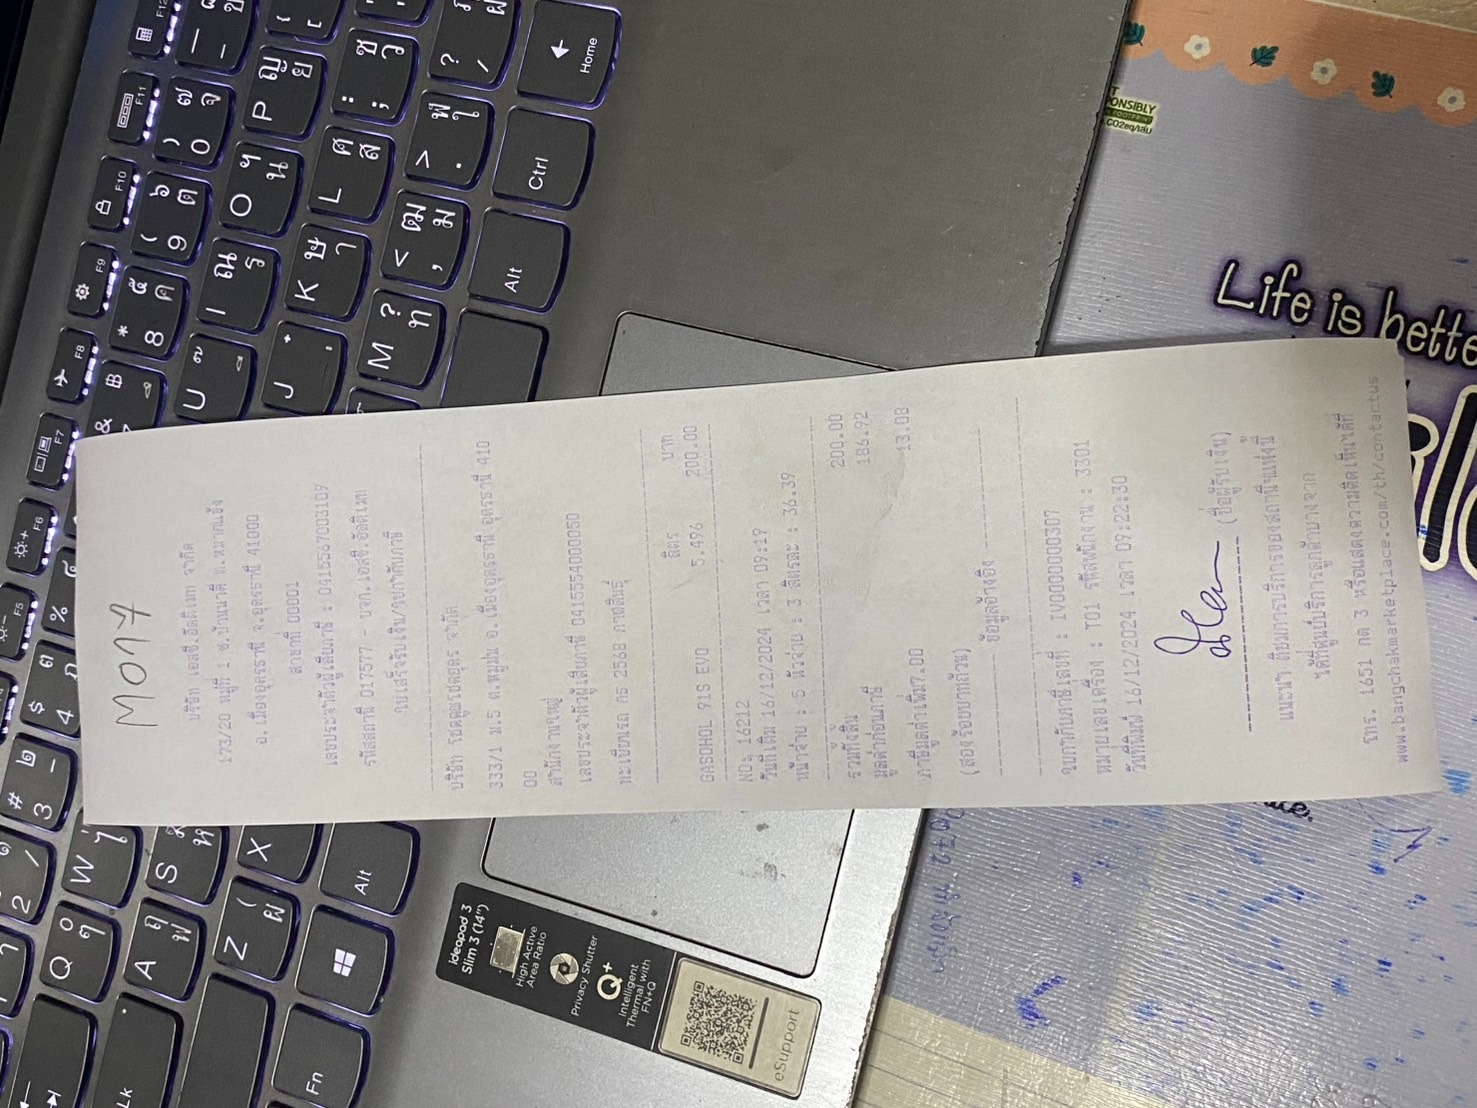 M017
บริษัท เอสซี.อัลติเมท จำกัด
173/20 หมู่ที่ 1 ซ.บ้านนาดี ต.หมากแข้ง
อ.เมืองอุดรธานี จ.อุดรธานี 41000
สาขาที่ 00001
เลขประจำตัวผู้เสียภาษี : 0415567003109
รหัสสถานี 017577 - บจก.เอสซี.อัลติเมท
ใบเสร็จรับเงิน/ใบกำกับภาษี
บริษัท โชคคูณโชคอุดร จำกัด
333/1 ม.5 ต.หมูม่น อ.เมืองอุดรธานี อุดรธานี 410
00
สำนักงานใหญ่
เลขประจำตัวผู้เสียภาษี 0415554000050
ทะเบียนรถ กธ 2568 กาฬสินธุ์
ลิตร บาท
GASOHOL 91S EVO 5.496 200.00
NO: 16212
วันที่เติม 16/12/2024 เวลา 09:19
หน้าจ่าย : 5 หัวจ่าย : 3 ลิตรละ : 36.39
รวมทั้งสิ้น 200.00
มูลค่าก่อนภาษี 186.92
ภาษีมูลค่าเพิ่ม7.00 13.08
(สองร้อยบาทถ้วน)
ข้อมูลอ้างอิง
ใบกำกับภาษีเลขที่ : IV00000000307
หมายเลขเครื่อง : T01 รหัสพนักงาน : 3301
วันที่พิมพ์ 16/12/2024 เวลา 09:22:30
(ชื่อผู้รับเงิน)
แนะนำ ติชมการบริการของสถานีฯแห่งนี้
ได้ที่ศูนย์บริการลูกค้าบางจาก
โทร. 1651 กด 3 หรือแสดงความคิดเห็นได้ที่
www.bangchakmarketplace.com/th/contactus
Life is bette
ideapad 3
Slim 3 (14")
High Active
Area Ratio
Privacy Shutter
Q+
Intelligent
Thermal with
FN+Q
eSupport
F12
F11
F10
F9
F8
F7
F6
F5
Home
Ctrl
Alt
Alt
Fn